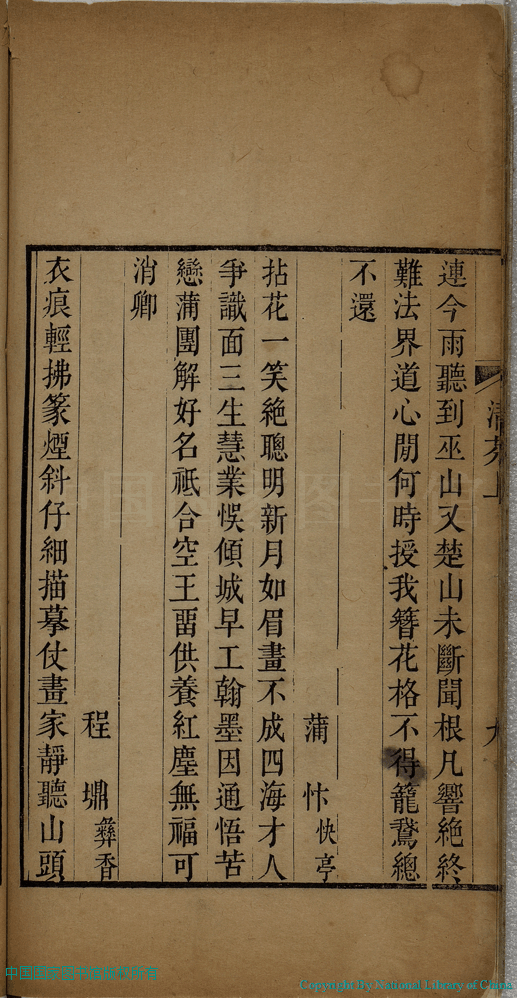 連今雨聽到巫山又楚山未斷聞根凡響絶終
難法界道心閒何時授我簪花格不得籠鵞總
不還
蒲忭快亭
拈花一笑絶聰明新月如眉畫不成四海才人
爭識面三生慧業悞傾城早工翰墨因通悟苦
戀蒲團解好名祗合空王畱供養紅塵無福可
消卿
程㙷彝香
衣痕輕拂篆煙斜仔細描摹仗畫家靜聽山頭
Copyright By National Library of China